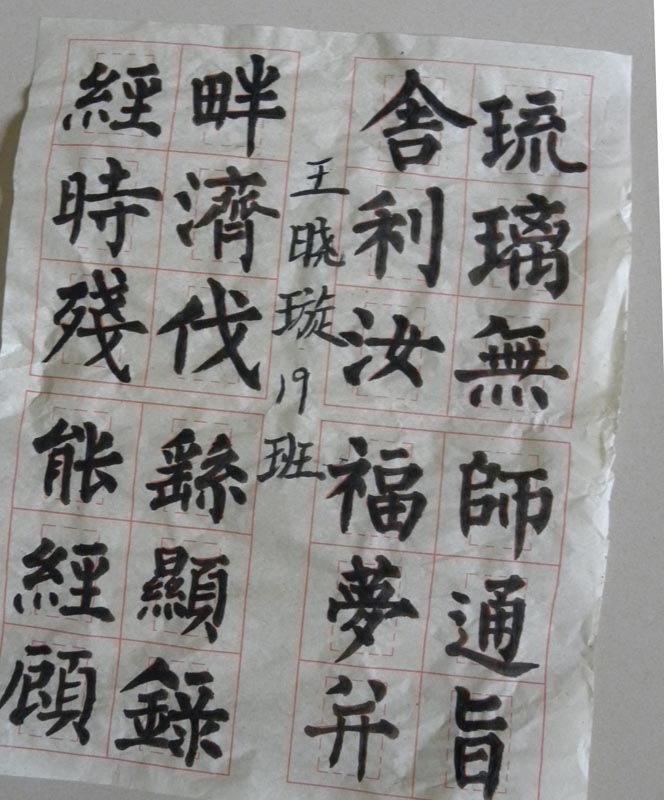 琉璃無師通旨
舍利汝福夢并
王晓璇19班
畔濟伐繇顯錄
經時殘能經頋